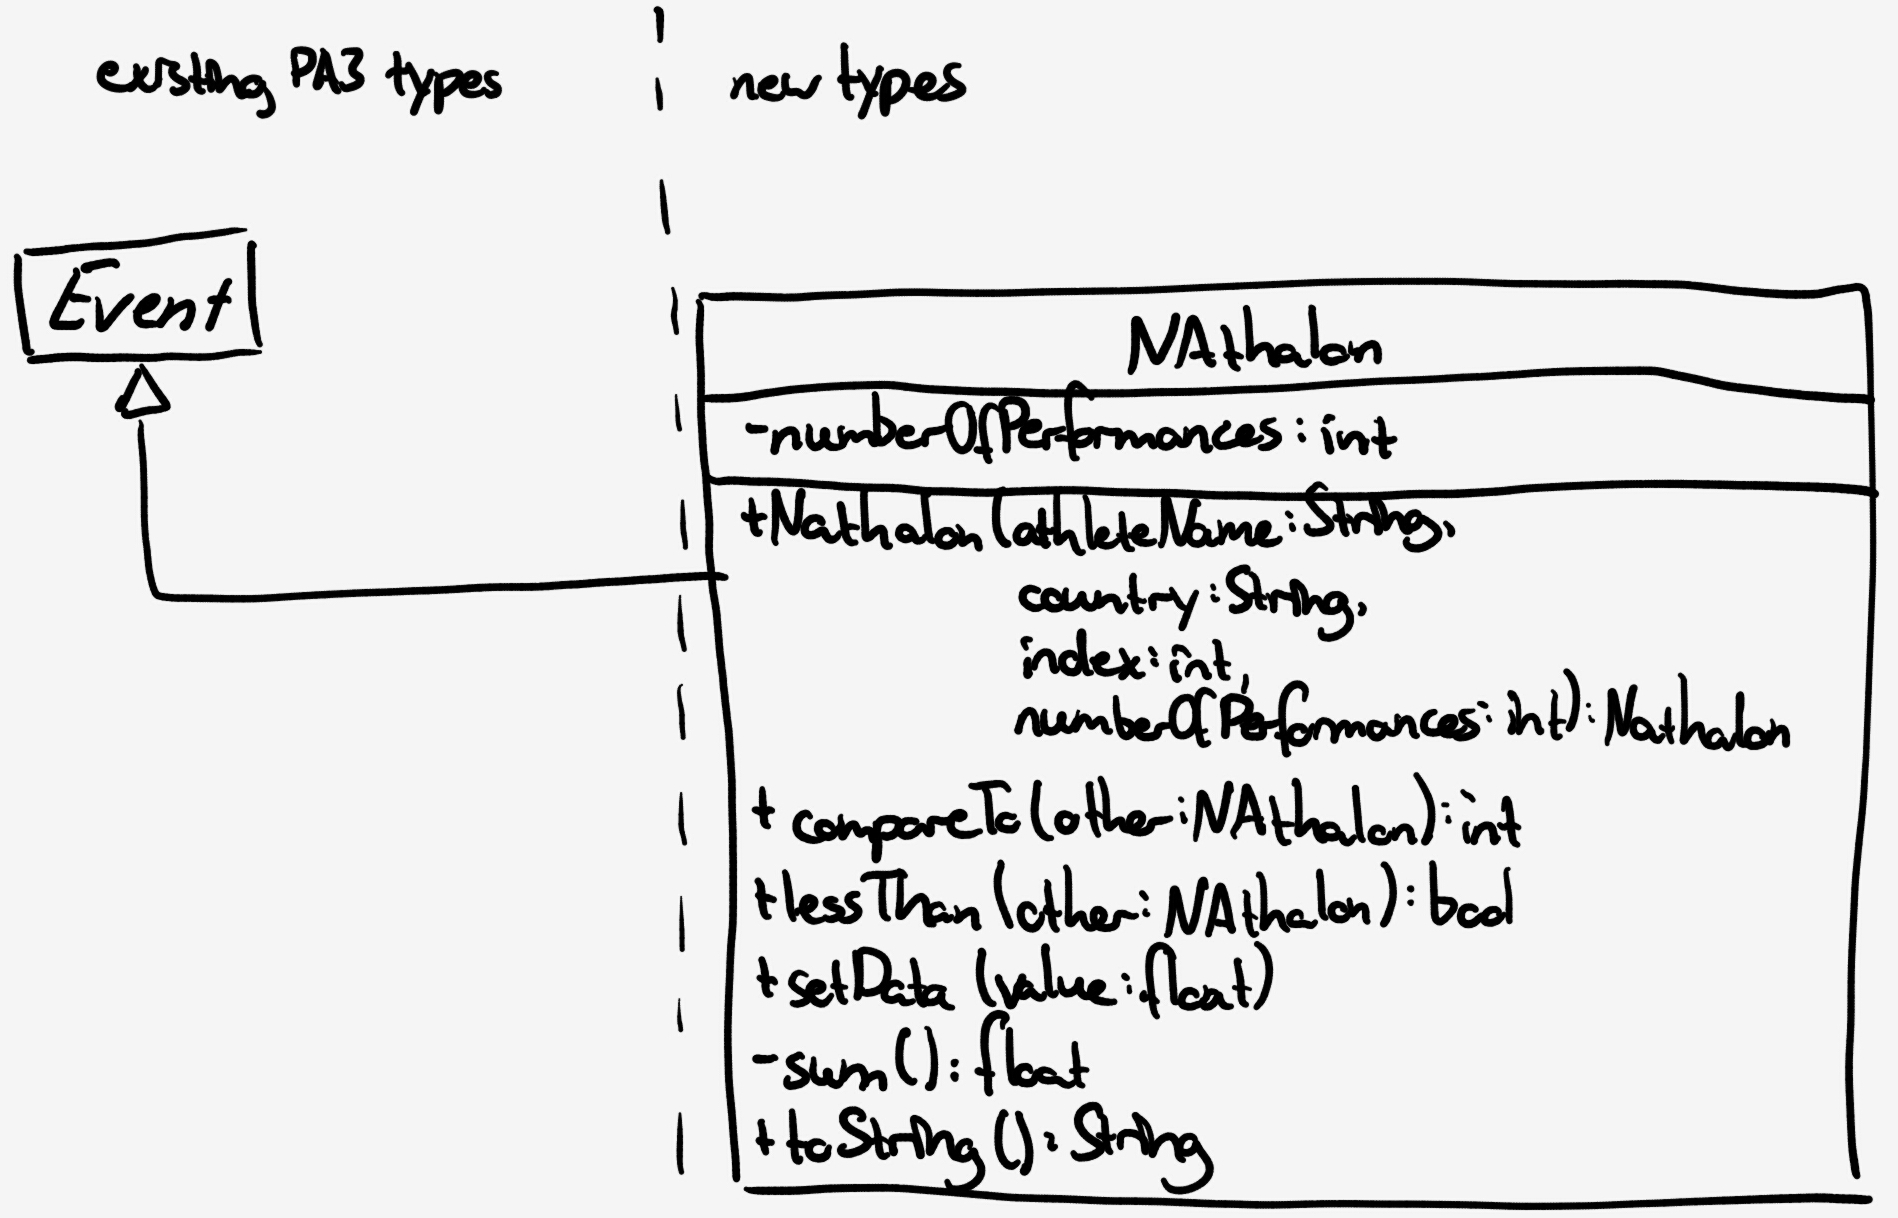 existing PA3 types
new types
Event
NAthalon
-numberOfPerformances: int
+Nathalon (athleteName: String,
country: String,
index: int,
numberOfPerformances: int): Nathalon
+ compareTo (other: NAthalon): int
+ lessThan (other: NAthalon): bool
+ setData (value: float)
- sum(): float
+ toString (): String